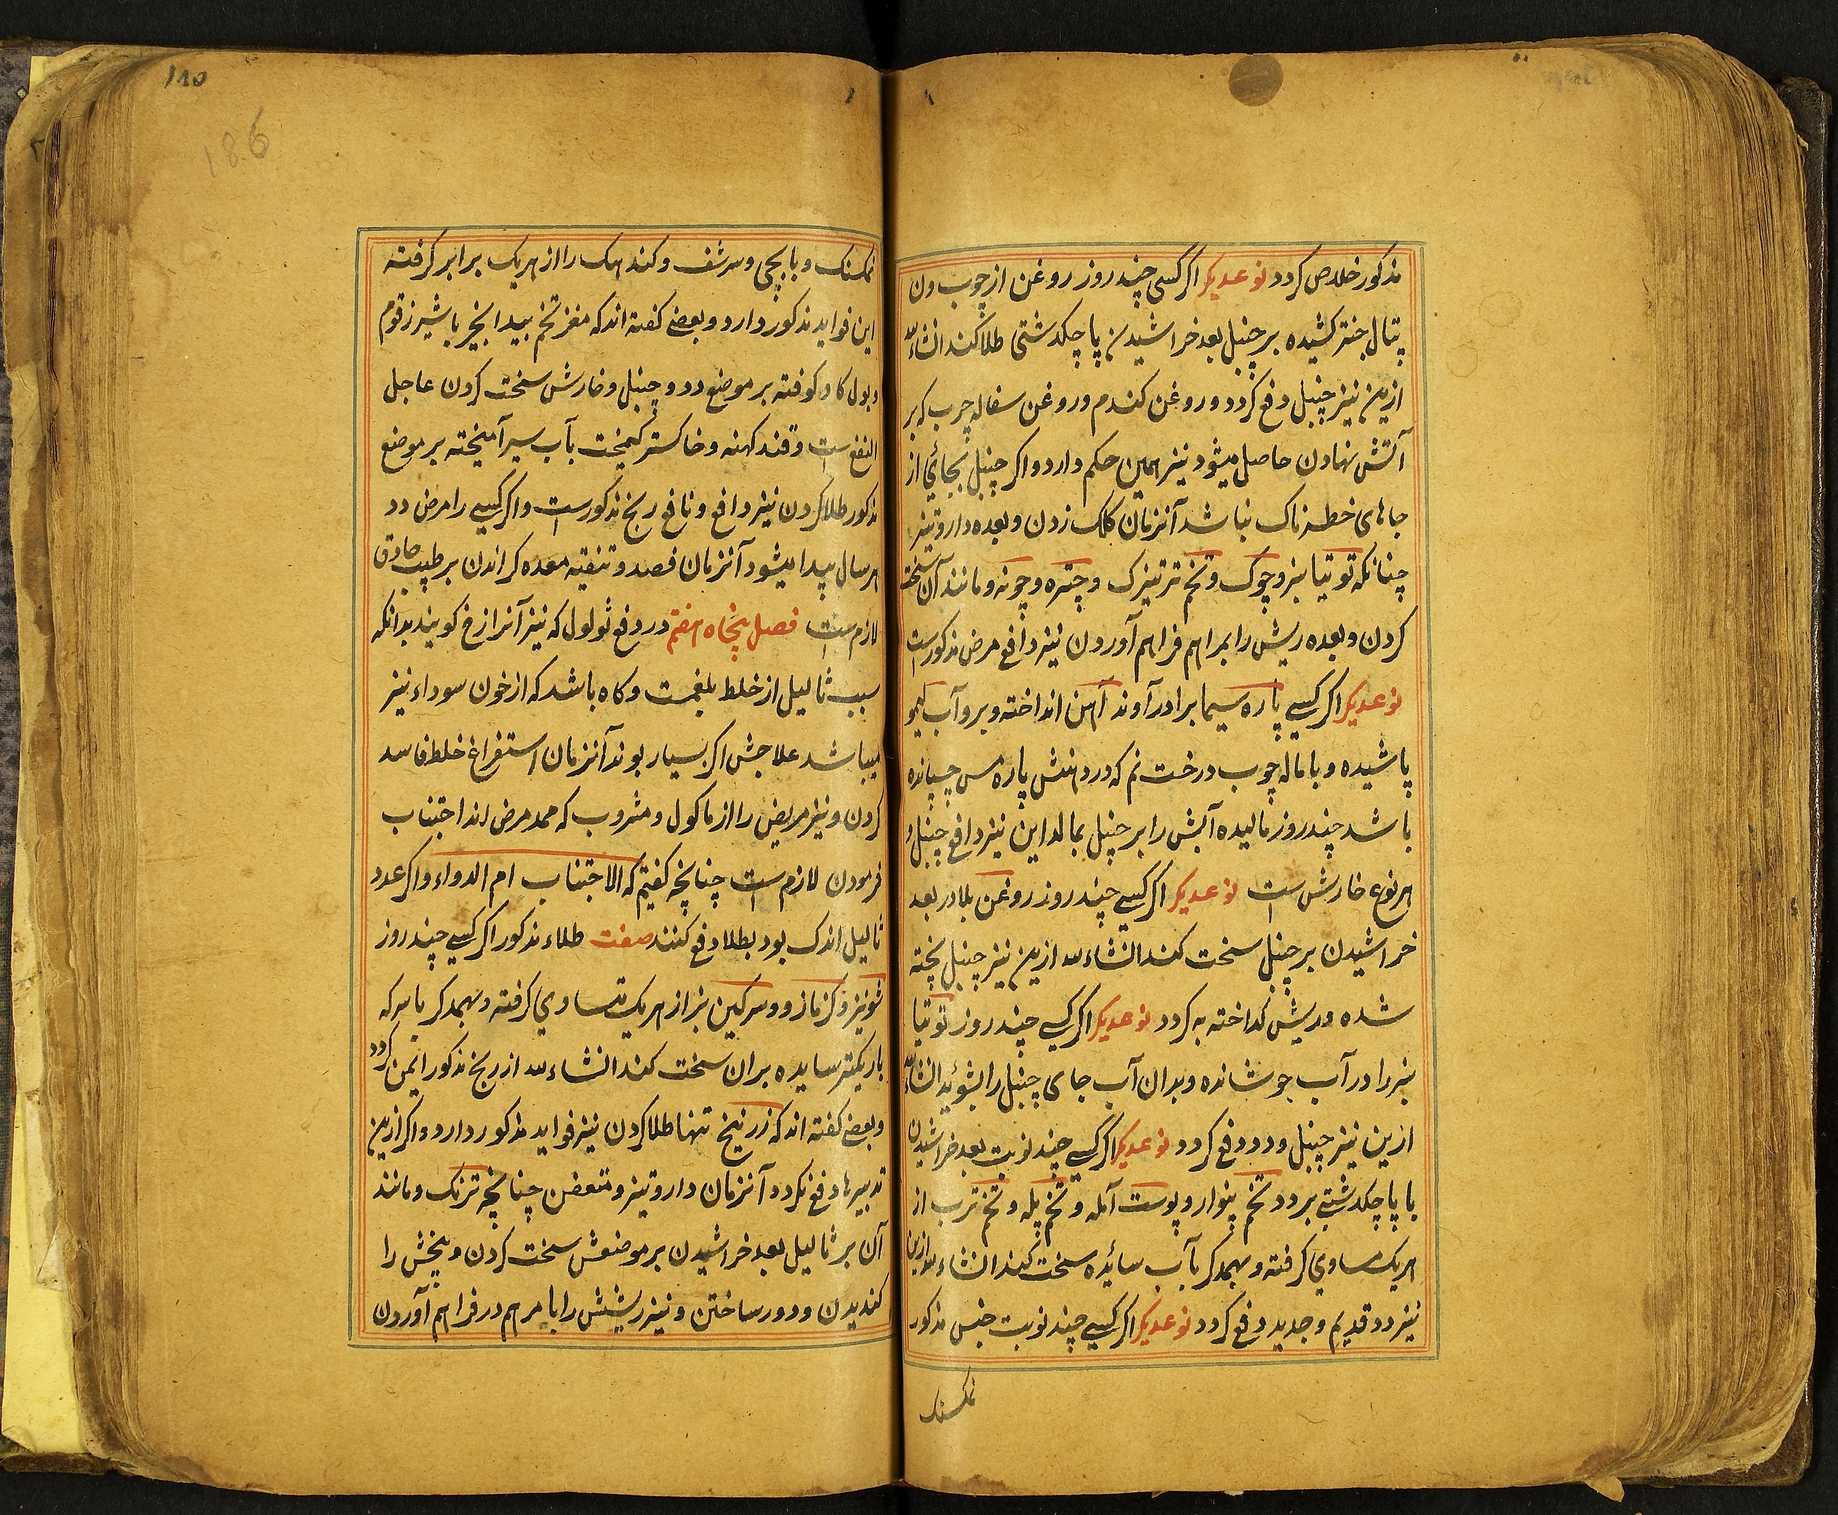 مذکور خلاص کردد نوعدیکر اکر کسی چند روز روغن از چوب ون
پتال جنتر کشیده بر چنبل بعد خراشیدن پاچکدشتی طلا کند انشاءلله
ازین نیز چنبل دفع کردد و روغن کندم و روغن سفاله چرب که بر
آتش نهادن حاصل میشود نیز همین حکم دارد و اکر چنبل بجائی از
جاهای خطرناک نباشد آنزمان کلک زدن و بعده داروتیز
چنانکه توتیا سبز و چوک و تخم ترتیزک و چتره و چونه و مانند آن سخت
کردن و بعده ریش را بمراهم فراهم آوردن نیز دافع مرض مذکور است
نوعدیکر اکر کسے پاره سیماب را در آوند آهن انداخته و برو آب لیمو
پاشیده و با ماله چوب درخت نم که در دهنش پاره مس چسپانده
باشد چند روز مالیده آبش را بر چنبل بمالد این نیز دافع چنبل و
هر نوع خارش است نوعدیکر اکر کسے چند روز روغن بلادر بعد
خراشیدن بر چنبل سخت کند انشاءلله ازین نیز چنبل پخته
شده و ریش کداخته به کردد نوعدیکر اکر کسے چند روز توتیا
سبز را در آب جوشانده و بدان آب جای چنبل را بشوئید انشاءلله
ازین نیز چنبل و دد دفع کردد نوعدیکر اکر کسے چند نوبت بعد خراشیدن
با پاچکدشتے بر دد تخم پنوار و پوست آمله و تخم پله و تخم ترب از
هریک مساوی کرفته و بهمدکر بآب سائیده سخت کند انشاءلله ازین
نیز دد قدیم و جدید دفع کردد نوعدیکر اکر کسے چند نوبت جنس مذکور
نمکسنک
نمکسنک و بابچی و سرشف و کندهک را از هریک برابر کرفته
این فواید مذکور دارد و بعضے کفته اند که مغز تخم بیدانجیر با شیر زقوم
و بول کاو کوفته بر موضع دد و چنبل و خارش سخت کردن عاجل
النفع است و قند کهنه و خاکستر کیمخت بآب سیر آمیخته بر موضع
مذکور طلا کردن نیز دافع و نافع رنج مذکورست و اکر کسے را مرض دد
هر سال پیدا میشود آنزمان فصد و تنقیه معده کراندن بر طبیب حاذق
لازم است فصل پنجاه هفتم در دفع ثولول که نیز آنرا زخ کویند بدانکه
سبب ثالیل از خلط بلغمت و کاه باشد که از خون سوداء نیز
میباشد علاجش اکر بسیار بوند آنزمان استفراغ خلط فاسد
کردن و نیز مریض را از ماکول و مشروب که ممد مرض اند اجتناب
فرمودن لازم است چنانچه کفتیم که الاجتناب ام الدواء و اکر عدد
ثالیل اندک بود بطلا دفع کنند صفت طلاء مذکور اکر کسے چند روز
شونیز و کزمازو و سرکین بز از هریک متساوی کرفته و بهمدکر با سرکه
باریکتر ساییده بران سخت کند انشاءلله از رنج مذکور ایمن کردد
و بعضے کفته اند که زرنیخ تنها طلا کردن نیز فواید مذکور دارد و اکر ازین
تدبیرها دفع نکردد آنزمان داروتیز و متعفن چنانچه ترنک و مانند
آن بر ثالیل بعد خراشیدن بر موضعش سخت کردن و بیخش را
کندیدن و دور ساختن و نیز ریشش را با مرهم در فراهم آوردن
۱۸۵
186